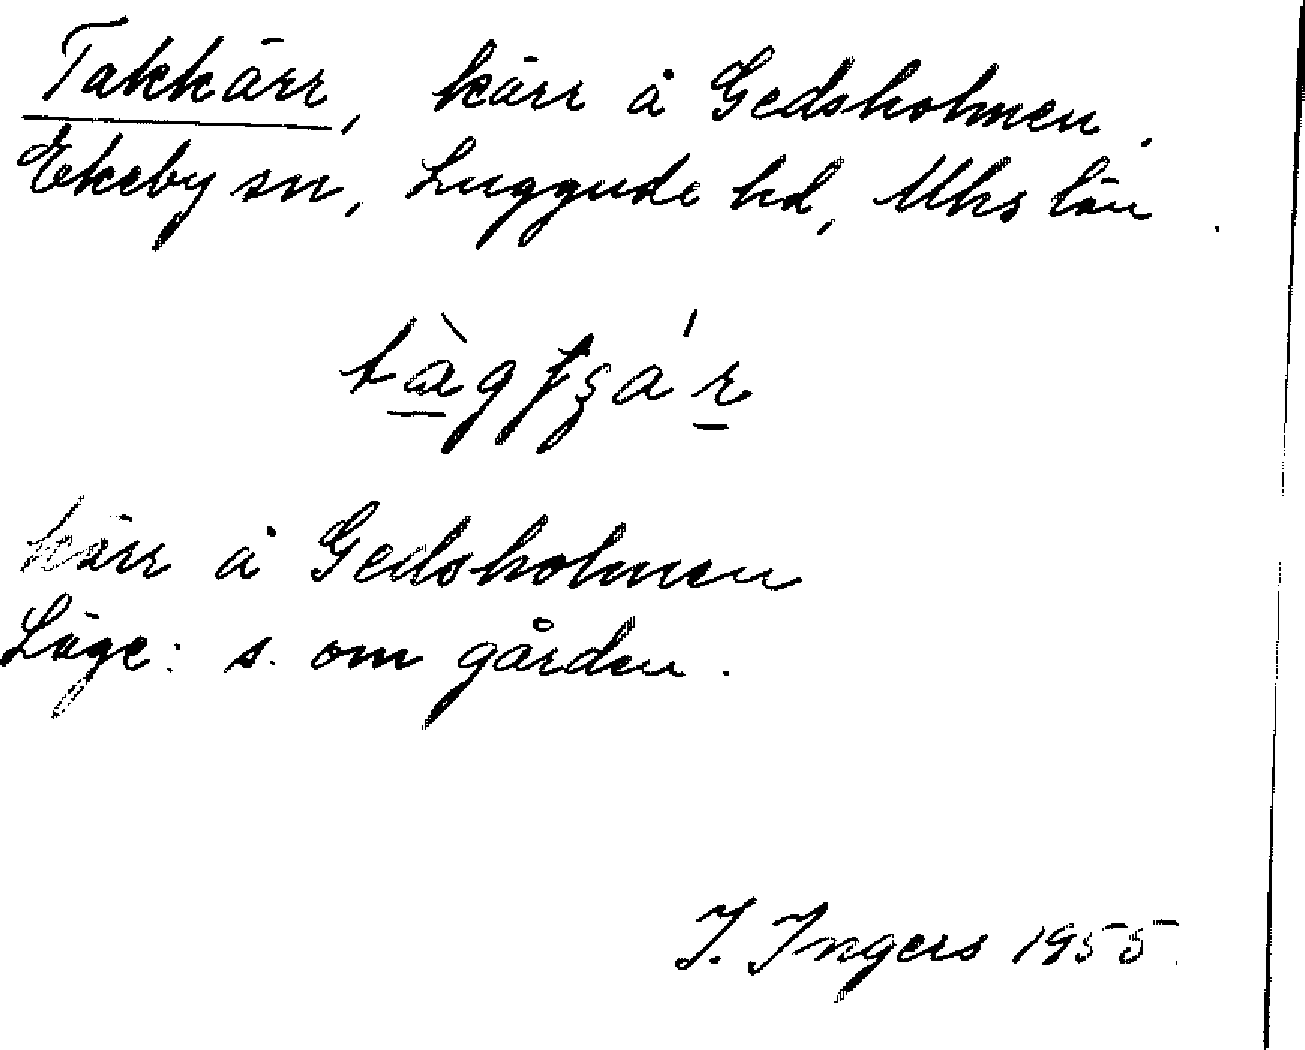 Takkärr, kärr å Gedsholmen.
Ekeby sn, Luggude hd, Mhs län.
kärr å Gedsholmen
Läge: s. om gården.
I. Ingers 1955.